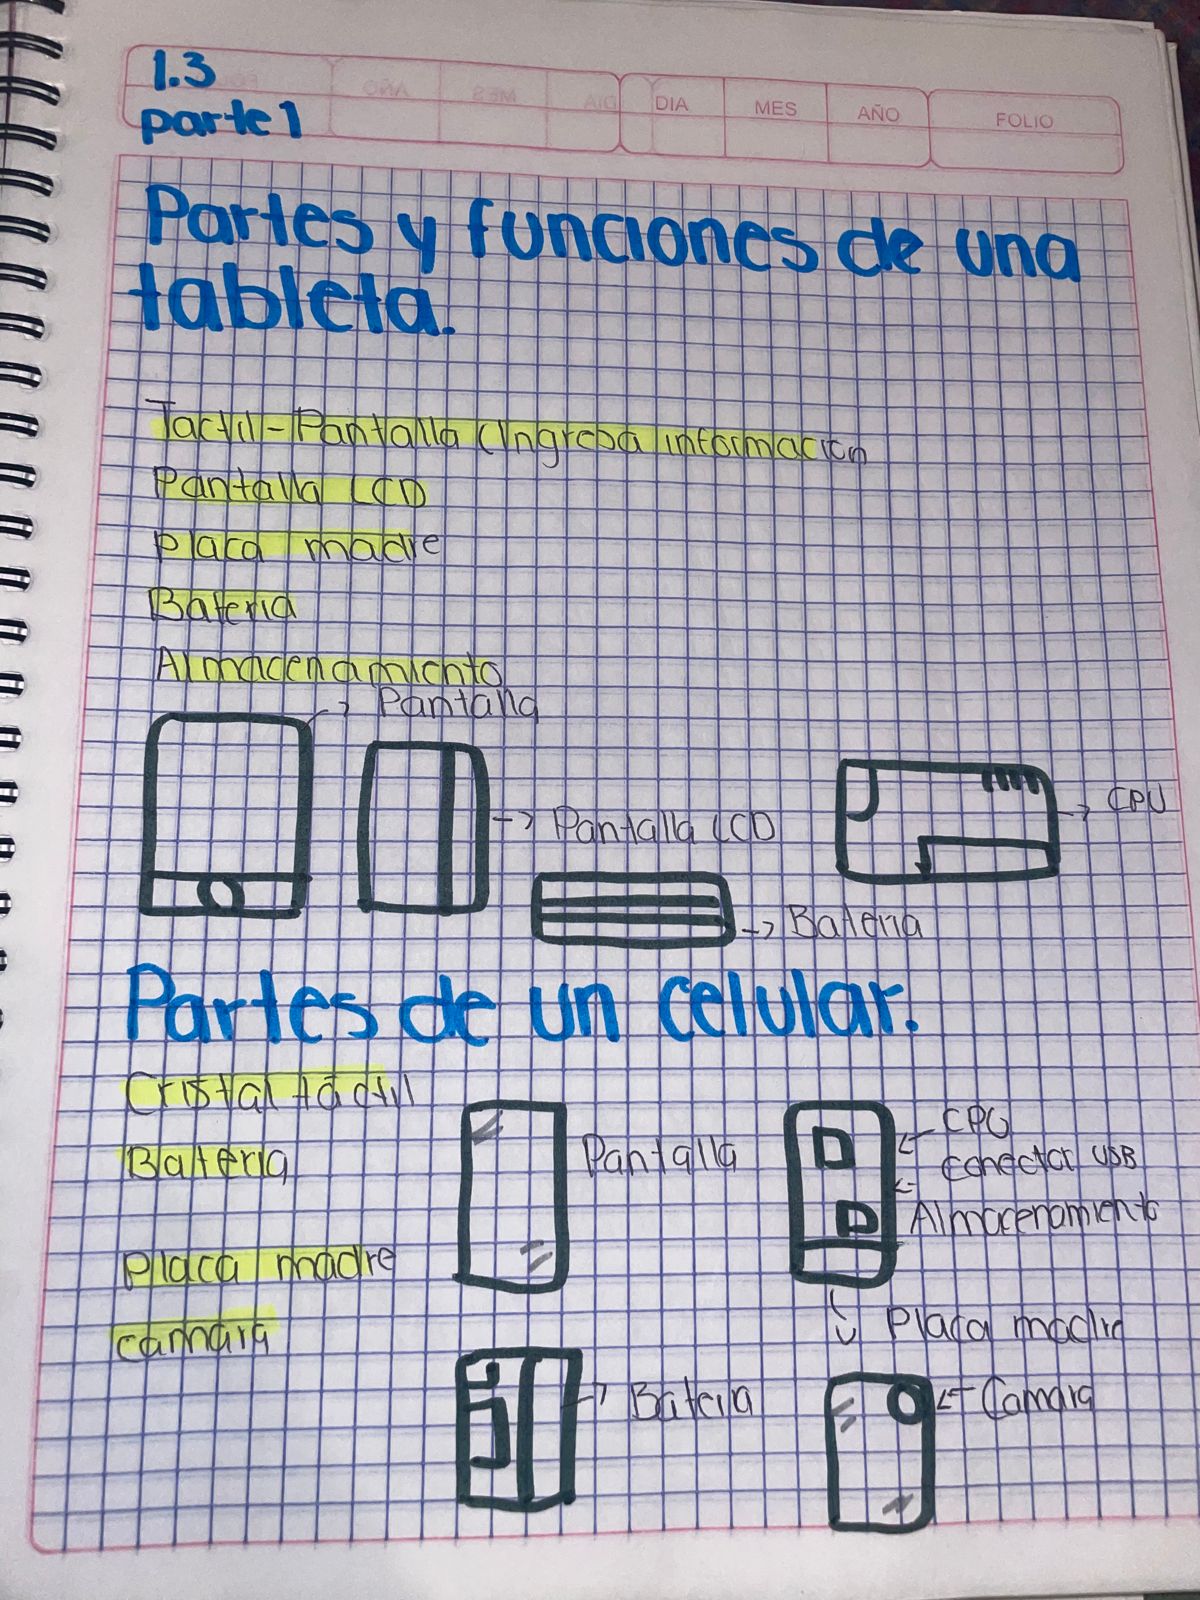 1.3
parte 1
DIA MES AÑO FOLIO
Partes y funciones de una
tableta.
Tactil-Pantalla (Ingresa informacion
Pantalla LCD
Placa madre
Bateria
Almacenamiento
Pantalla
Pantalla LCD
CPU
Bateria
Partes de un celular.
Cristal táctil
Bateria
Placa madre
camara
Pantalla
CPU
Conector USB
Almacenamiento
Placa madre
Bateria
Camara